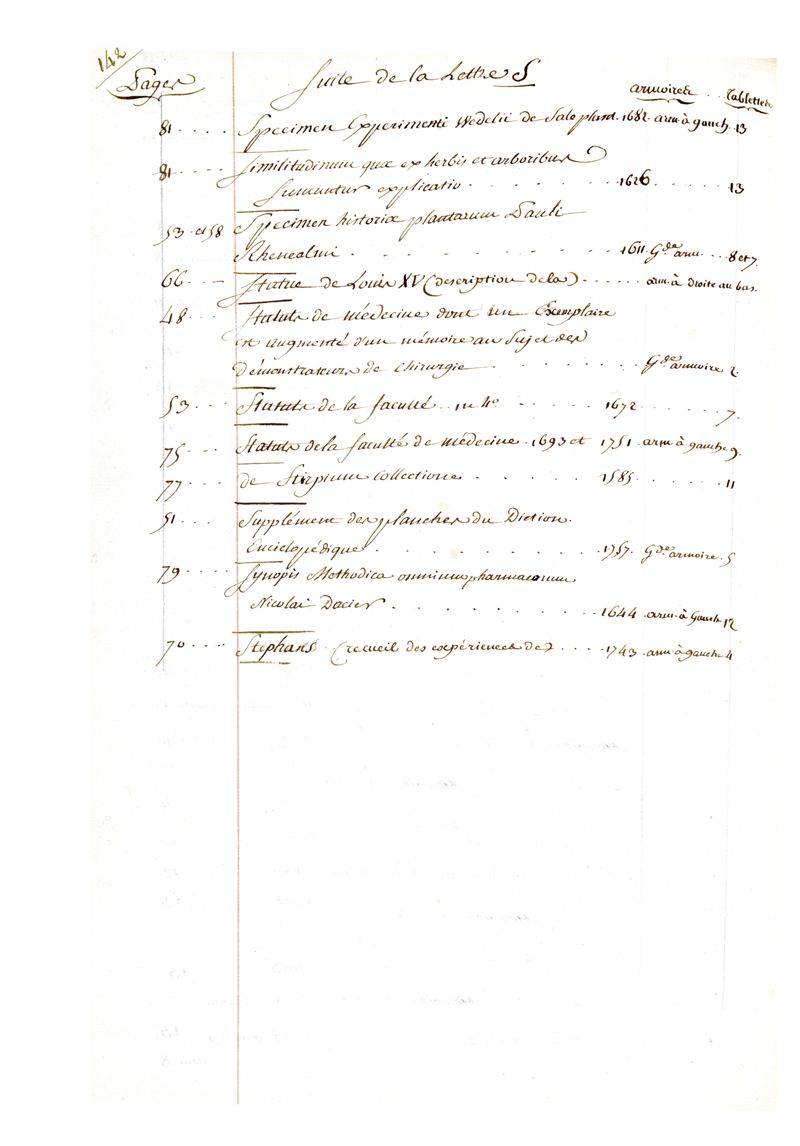 142
Pages Suite de la Lettre S armoires .. Tablettes
81 .... Specimen Experimenti Wedelii de Salo plant. 1682. arm à gauch. 13
81 .... Similitudinum quæ ex herbis et arboribus
Sumuntur explicatio ...... 1626 ...... 13
53 . et 58 Specimen historiæ plantarum Pauli
Rhenealmi ........ 1611. Gde arm .... 8 et 7.
66 ... Statue de Louis XV (description de la) ...... arm. à droite au bas.
48 ... Statuts de médecine dont un Exemplaire
est augmenté d'un mémoire au Sujet des
Démonstrateurs de chirurgie ....... Gde armoire 2.
53 ... Statuts de la faculté .. in 4º ..... 1672 ....... 7.
75 ... Statuts de la faculté de médecine . 1693 et 1751. arm à gauche 9.
77 ... de Stirpium Collectione ..... 1585 ...... 11
51 ... Supplément des planches du Diction.
Enciclopédique ......... 1757. Gde armoire . 5
79 .... Synopis Methodica omnium pharmacorum
Nicolai Dacier ......... 1644 arm. à Gauch. 12
70 .... Stephans (recueil des expériences de) .... 1743. arm à gauche 4